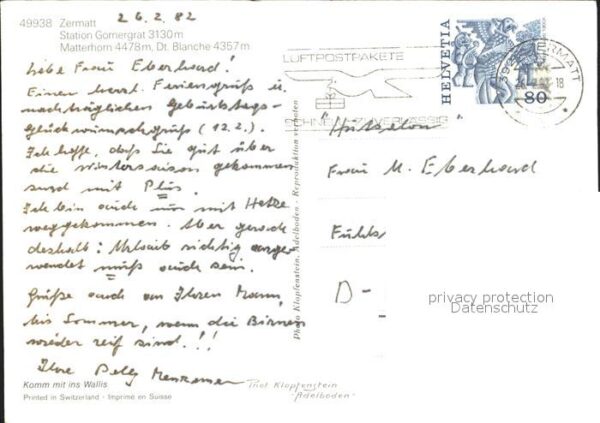 26.2.82
49938 Zermatt
Station Gornergrat 3130 m
Matterhorn 4478 m, Dt. Blanche 4357 m
Liebe Frau Eberhard!
Einen herzl. Feriengruß u.
nachträglichen Geburtstags-
glückwunschgruß (12.2.).
Ich hoffe, daß Sie gut über
die Wintersaison gekommen
sind mit Plus.
Ich bin auch nur mit Hetze
weggekommen. Aber gerade
deshalb: Urlaub richtig ange-
wendet muß auch sein.
Grüße auch an Ihren Mann,
bis Sommer, wenn die Birnen
wieder reif sind!!!
Ihre
Komm mit ins Wallis
Printed in Switzerland - Imprimé en Suisse
Photo Klopfenstein, Adelboden - Reproduktion verboten
LUFTPOSTPAKETE
SCHNELL ZUVERLÄSSIG
HELVETIA
80
ZERMATT
Frau M. Eberhard
D-
privacy protection
Datenschutz
Klopfenstein
Adelboden